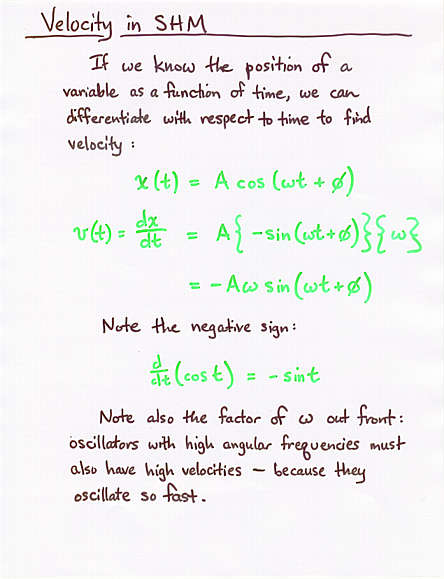 Velocity in SHM
If we know the position of a
variable as a function of time, we can
differentiate with respect to time to find
velocity :
x(t) = A cos (ωt + ø)
v(t) = dx/dt = A{ -sin(ωt+ø)}{ω}
= -Aω sin(ωt+ø)
Note the negative sign:
d/dt (cos t) = - sin t
Note also the factor of ω out front:
oscillators with high angular frequencies must
also have high velocities – because they
oscillate so fast.